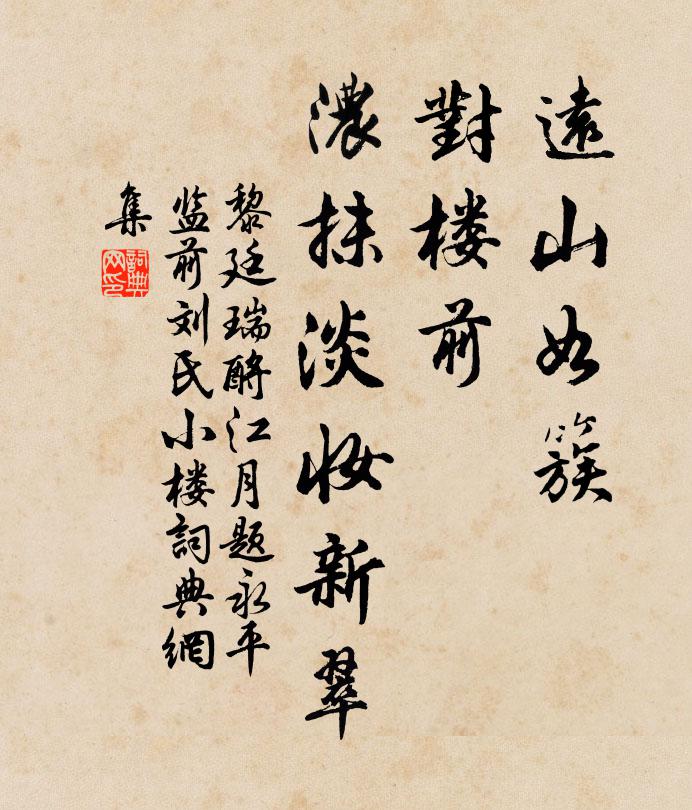 遠山如簇
對楼前
濃抹淡妝新翠
黎廷瑞酹江月题永平
监前刘氏小楼詞典網
集
詞典
网印